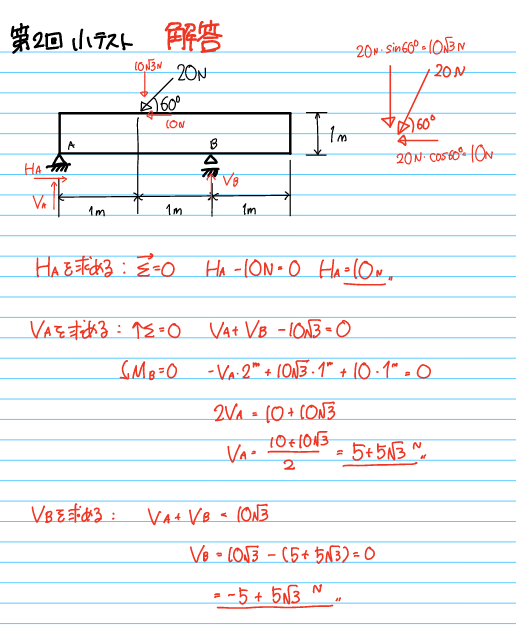 第2回 小テスト 解答
10√3N
20N
60°
10N
A
B
1m
HA
VA
VB
1m
1m
1m
20N・sin60°=10√3N
20N
60°
20N・cos60°=10N
HAを求める: Σ=0 HA-10N=0 HA=10N〃
VAを求める: ↑Σ=0 VA+VB-10√3=0
MB=0 -VA・2m+10√3・1m+10・1m=0
2VA=10+10√3
VA=(10+10√3)/2=5+5√3 N〃
VBを求める: VA+VB=10√3
VB=10√3-(5+5√3)=0
=-5+5√3 N〃